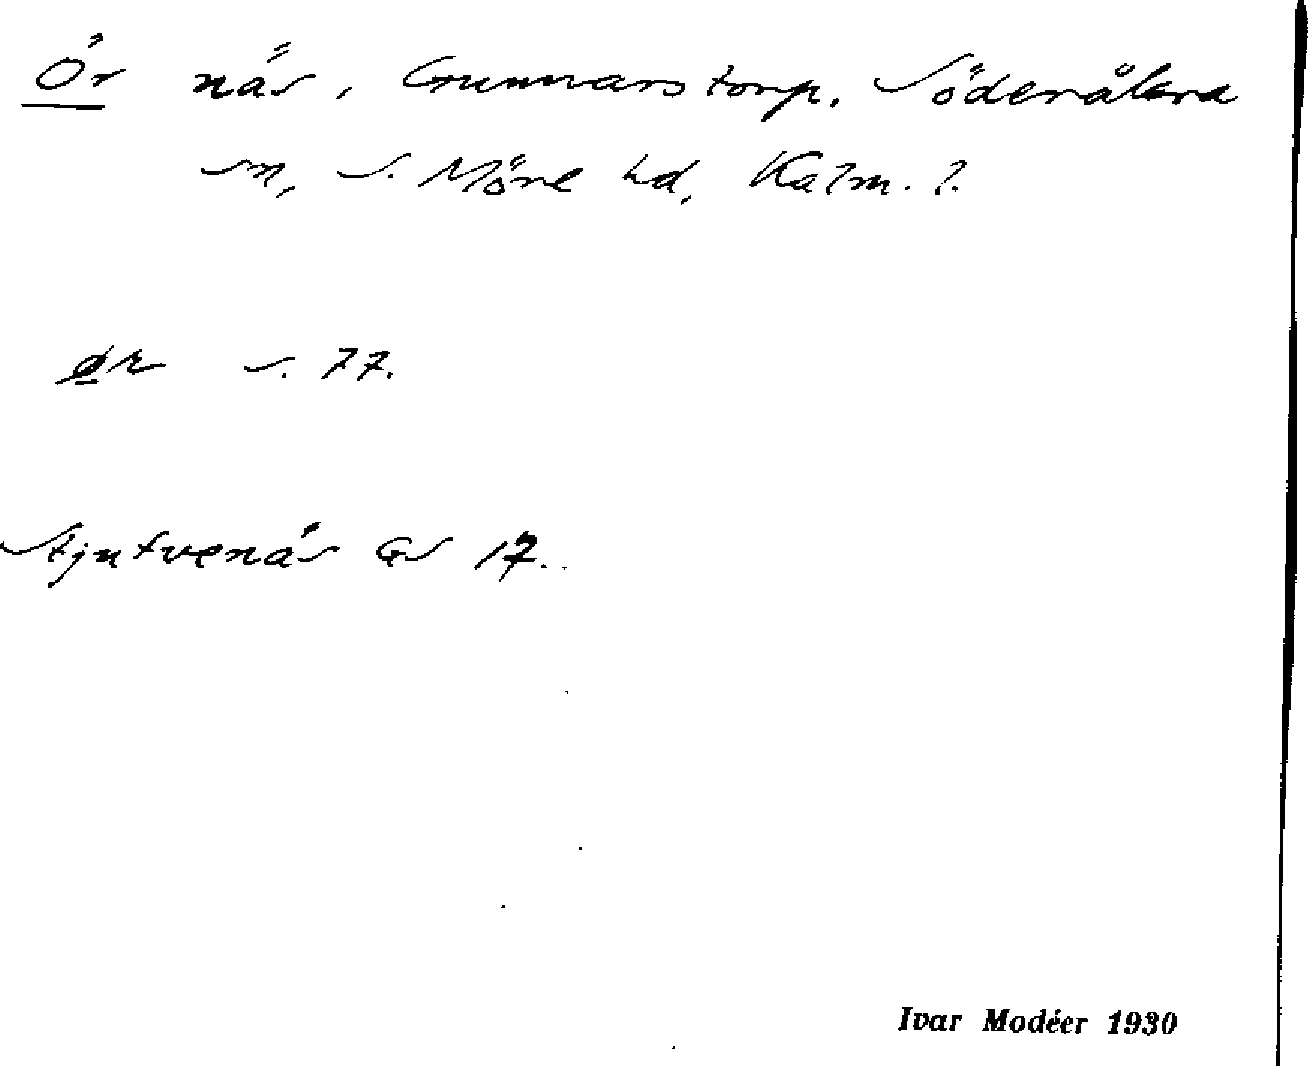 Ör näs, Gunnarstorp, Söderåkra
sn, S. Möre hd, Kalm. l.
ør s. 77.
Stjutvenäs GS 17.
Ivar Modéer 1930